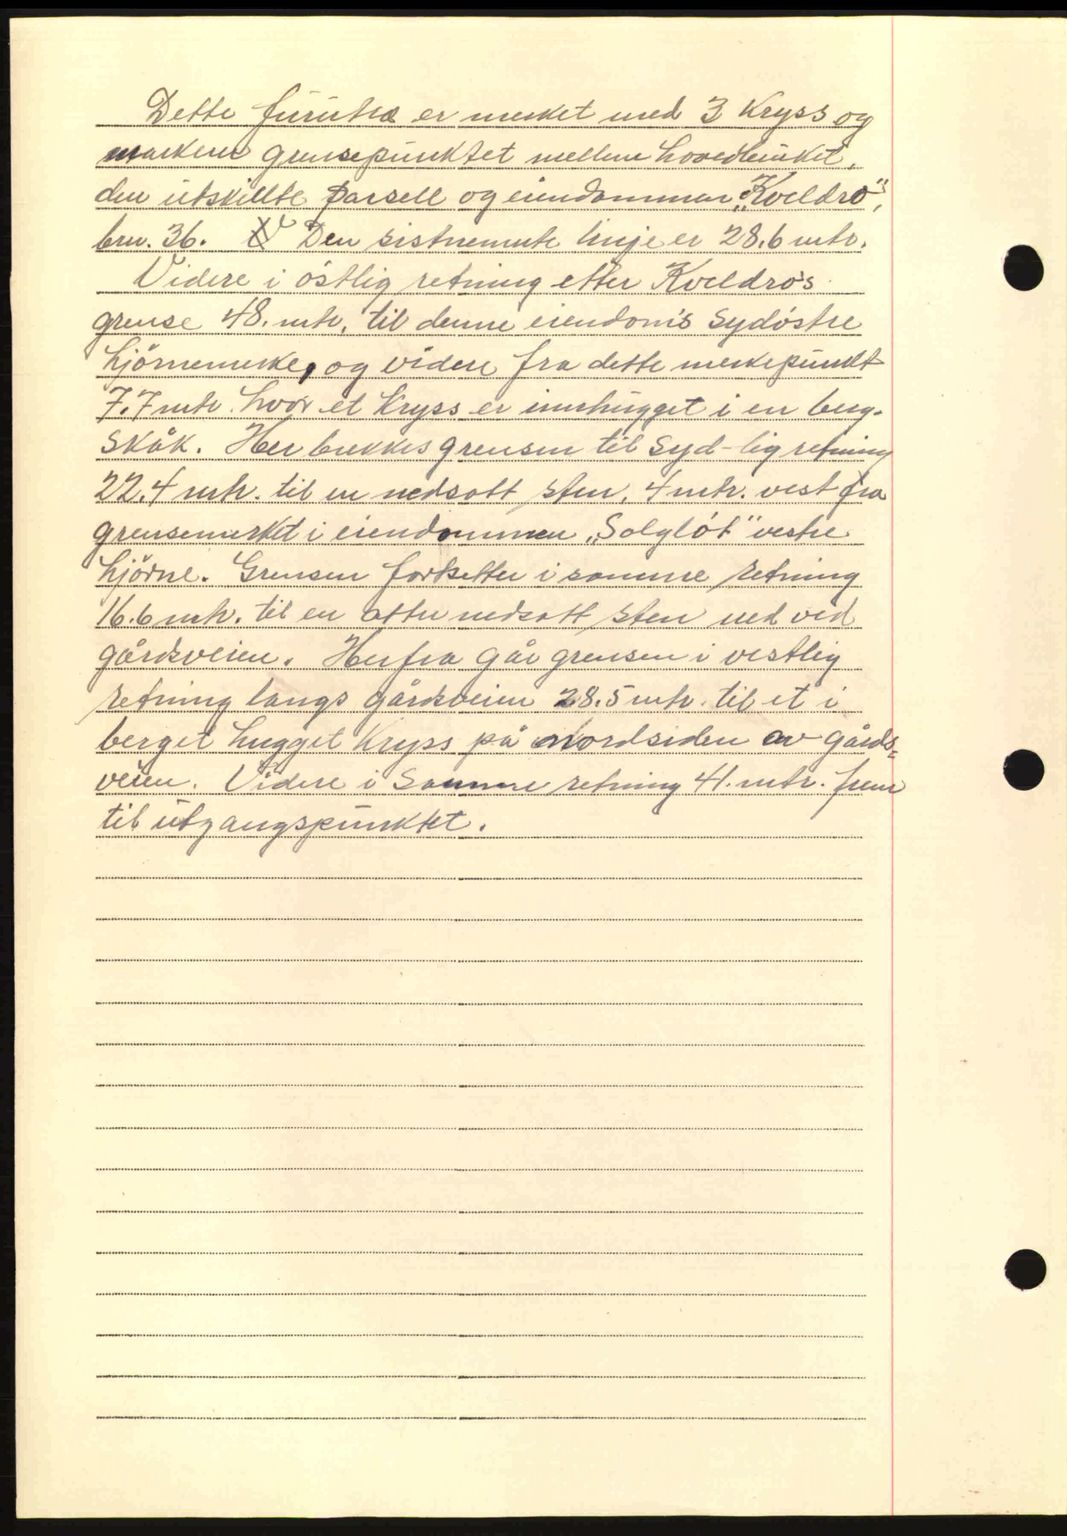 Dette furutre er merket med 3 Kryss og
markerer grensepunktet mellem hovedbruket,
den utskillte parsell og eiendommen "Kveldro",
brn. 36. Den sistnemnte linje er 28.6 mtr.
Videre i östlig retning etter Kveldro's
grense 48. mtr. til denne eiendom's sydöstre
hjörnemerke, og videre fra dette merkepunkt
7.7 mtr. hvor et Kryss er innhugget i en berg-
skåk. Her brekkes grensen til syd-lig retning
22.4 mtr. til en nedsatt sten, 4 mtr. vest fra
grensemerket i eiendommen „Solglöt" vestre
hjörne. Grensen fortsetter i samme retning
16.6 mtr. til en atter nedsatt sten ned ved
gårdsveien. Herfra går grensen i vestlig
retning langs gårdsveien 28.5 mtr. til et i
berget hugget Kryss på Nordsiden av gårds=
veien. Videre i samme retning 41. mtr. frem
til utgangspunktet.